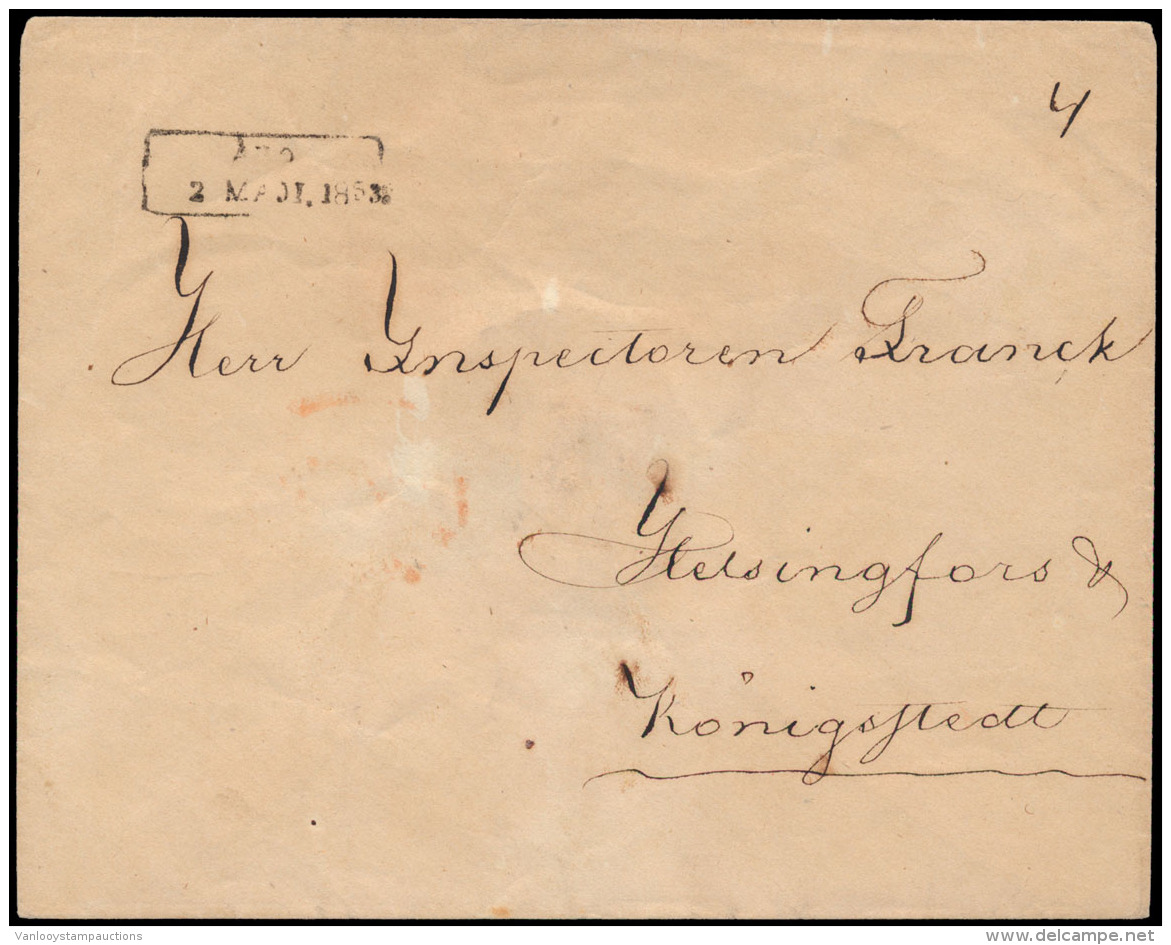 4
ABO
2 MAJI. 1853.
Herr Inspectoren Franck
Helsingfors &
Königsstedt
Vanlooystampauctions
delcampe.net